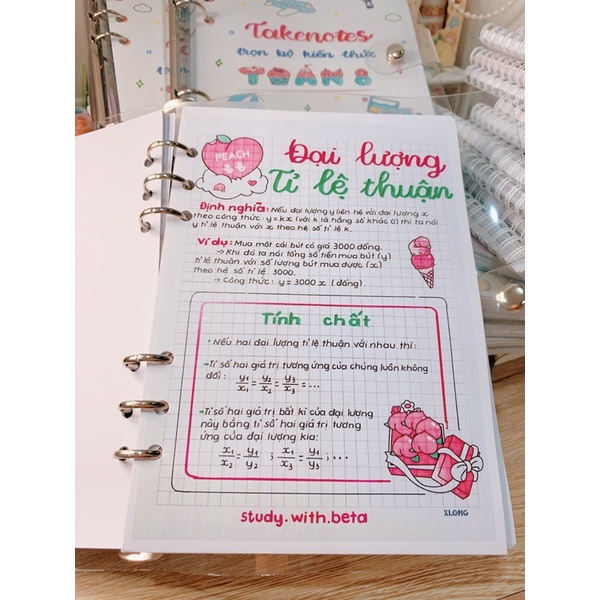 Takenotes
trọn bộ kiến thức
TOÁN 8
PEACH
Đại lượng
Tỉ lệ thuận
Định nghĩa: Nếu đại lượng y liên hệ với đại lượng x
theo công thức: y = kx (với k là hằng số khác 0) thì ta nói
y tỉ lệ thuận với x theo hệ số tỉ lệ k.
Ví dụ: Mua một cái bút có giá 3000 đồng.
→ Khi đó ta nói tổng số tiền mua bút (y)
tỉ lệ thuận với số lượng bút mua được (x)
theo hệ số tỉ lệ 3000.
→ Công thức: y = 3000 x (đồng).
Tính chất
• Nếu hai đại lượng tỉ lệ thuận với nhau thì:
-Tỉ số hai giá trị tương ứng của chúng luôn không
đổi: y1/x1 = y2/x2 = y3/x3 = ...
-Tỉ số hai giá trị bất kì của đại lượng
này bằng tỉ số hai giá trị tương
ứng của đại lượng kia:
x1/x2 = y1/y2 ; x1/x3 = y1/y3 ; ...
study.with.beta
XLONG